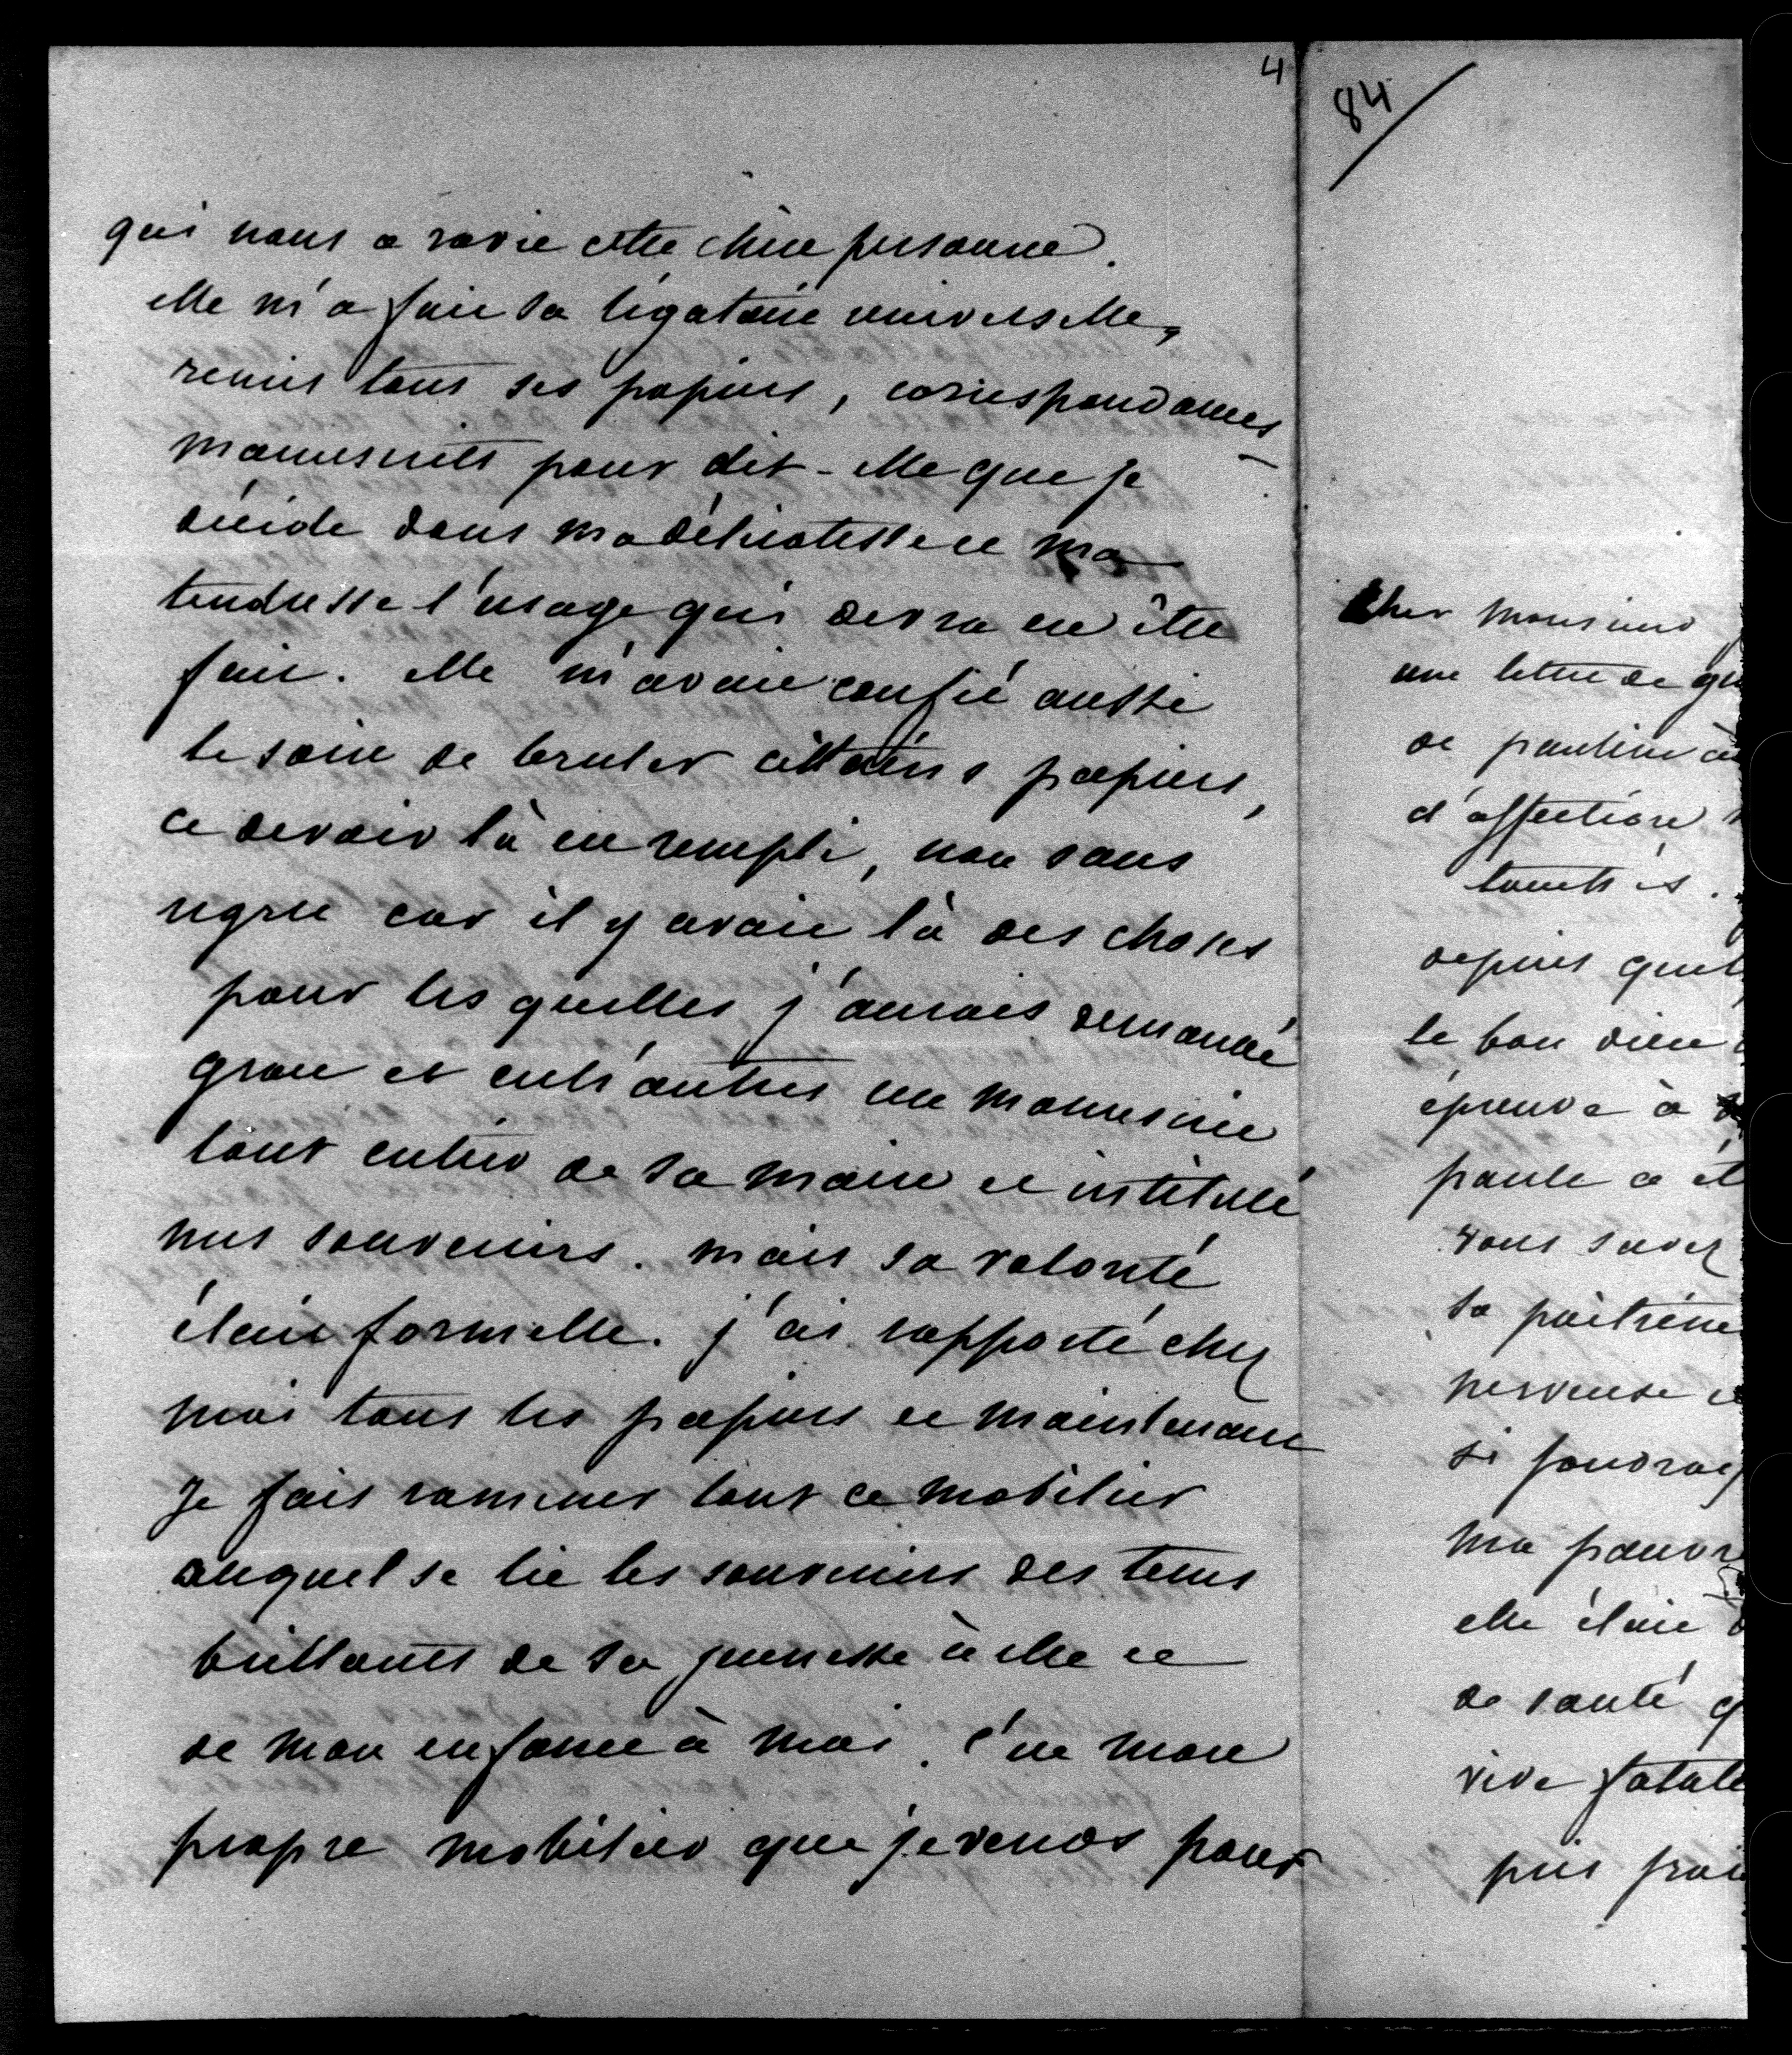 4
qui nous a ravie cette chère personne.
elle m'a fait sa légataire universelle,
remis tous ses papiers, correspondances
manuscrits pour dit-elle que je
décide dans ma délicatesse et ma
tendresse l'usage qui devra en être
fait. elle m'avait confié aussi
le soin de bruler certains papiers,
ce devoir là est rempli, non sans
regret car il y avait là des choses
pour les quelles j'aurais demandé
grace et entr'autres un manuscrit
tout entier de sa main et intitulé
mes souvenirs. mais sa volonté
était formelle. j'ai rapporté chez
moi tous les papiers et maintenant
Je fais ramener tout ce mobilier
auquel se lie les souvenirs des tems
brillants de sa jeunesse à elle et
de mon enfance à moi. c'est mon
propre mobilier que je vends pour
84
Cher Monsieur
une lettre de
de pauline
d'affection
touchés.
depuis
le bon dieu
épreuve à
paule a
vous savez
sa poitrine
nerveuse
si
ma pauvre
elle était
de santé
vive
puis